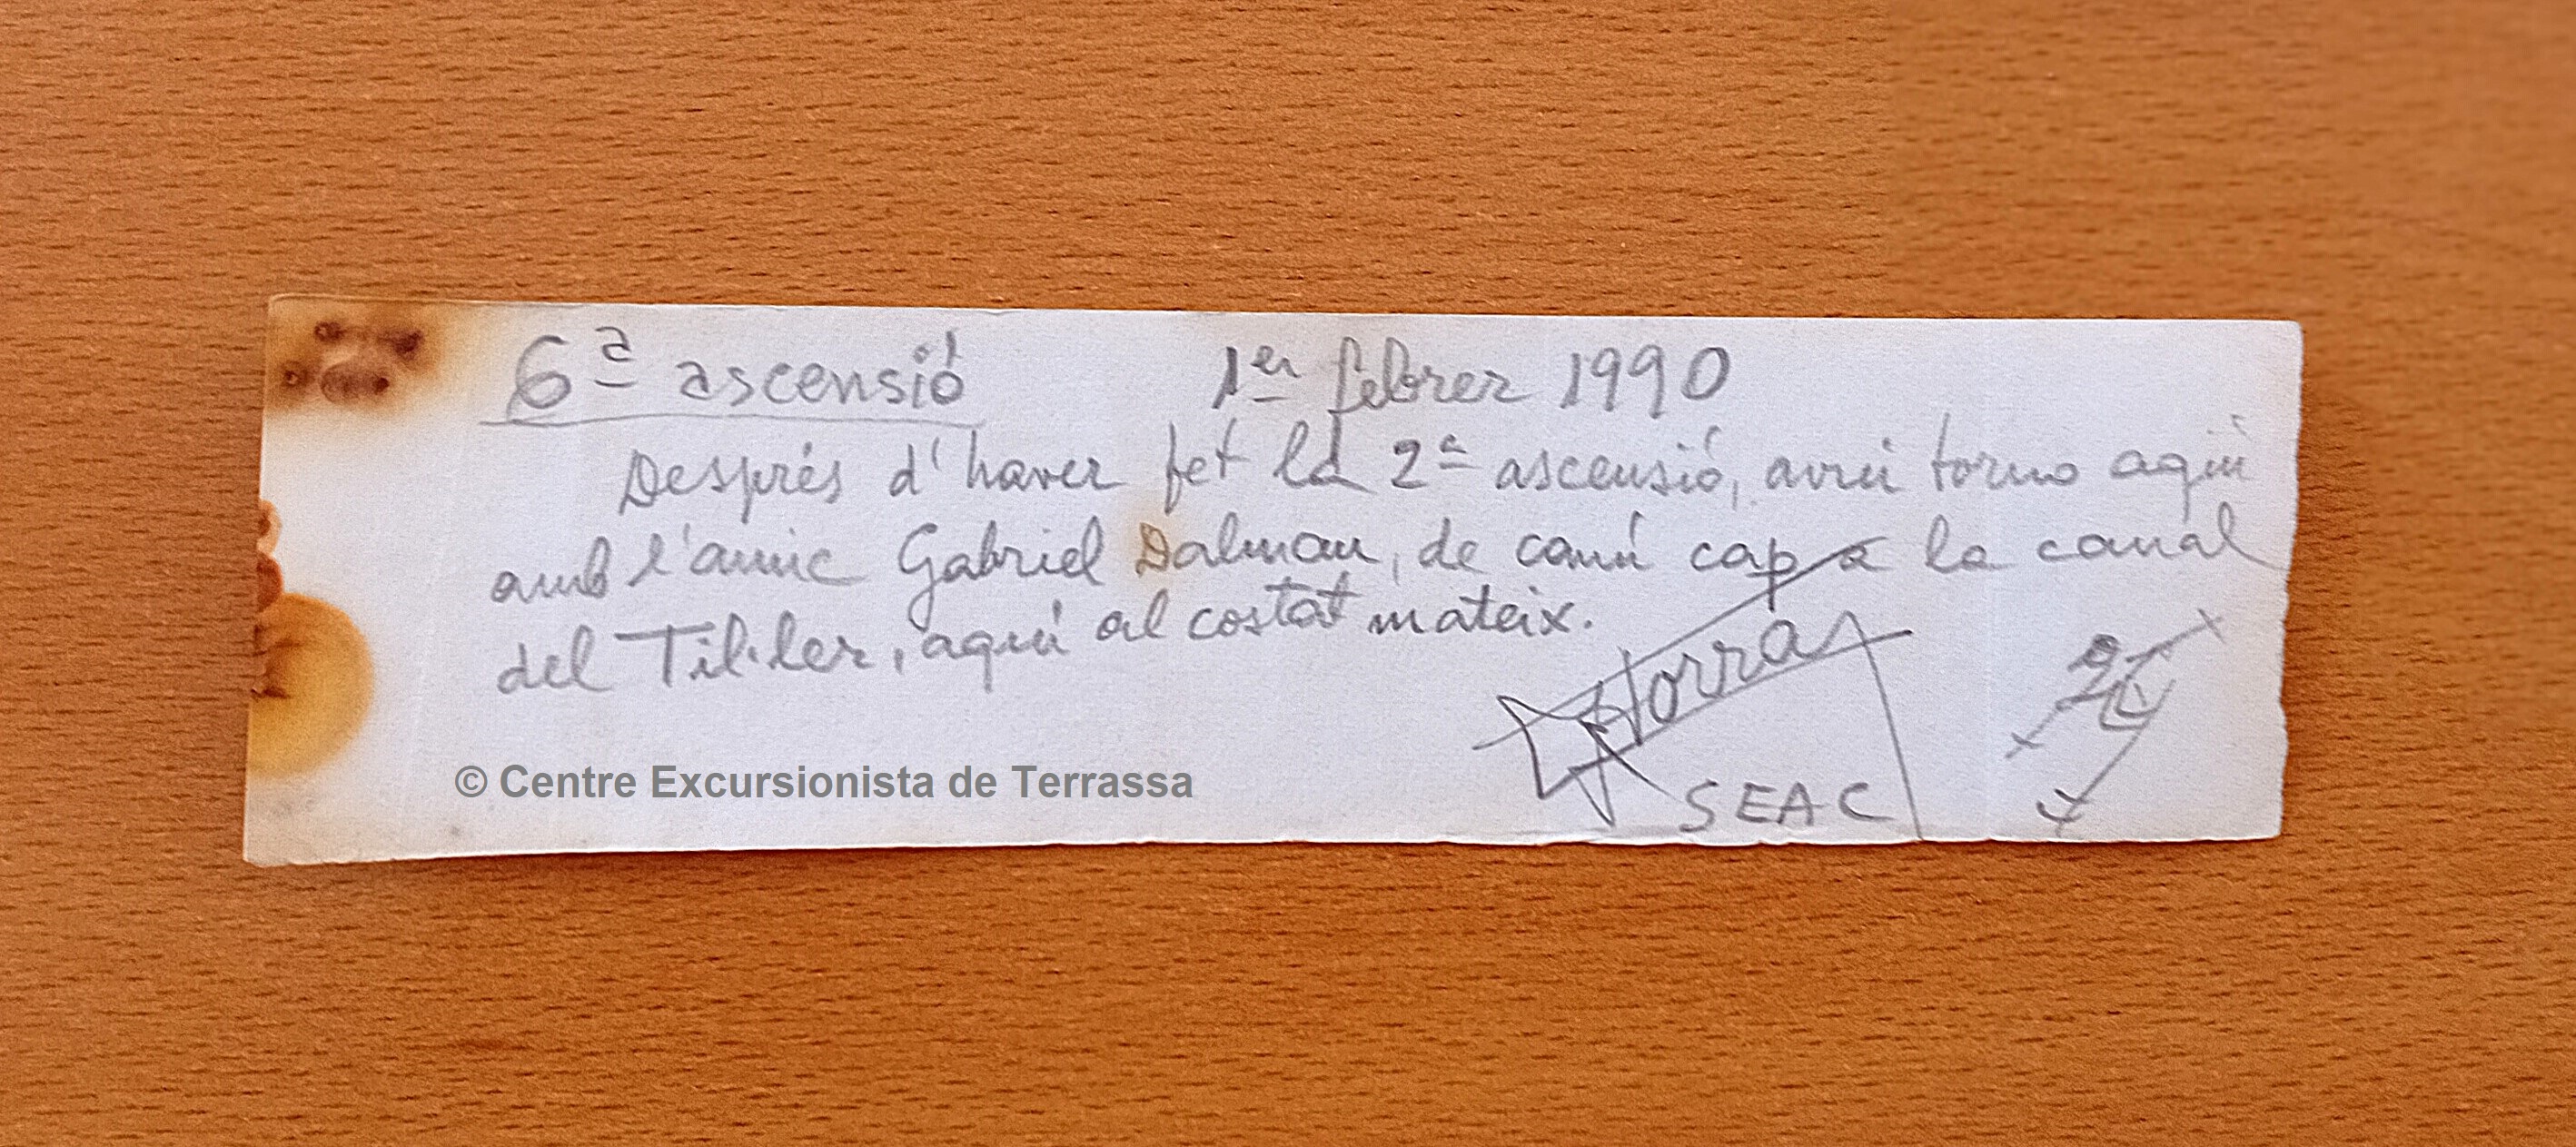 6ª ascensió 1er febrer 1990
Després d'haver fet la 2ª ascensió, avui torno aquí
amb l'amic Gabriel Dalmau, de camí cap a la canal
del Til·ler, aquí al costat mateix.
Torras
SEAC
© Centre Excursionista de Terrassa